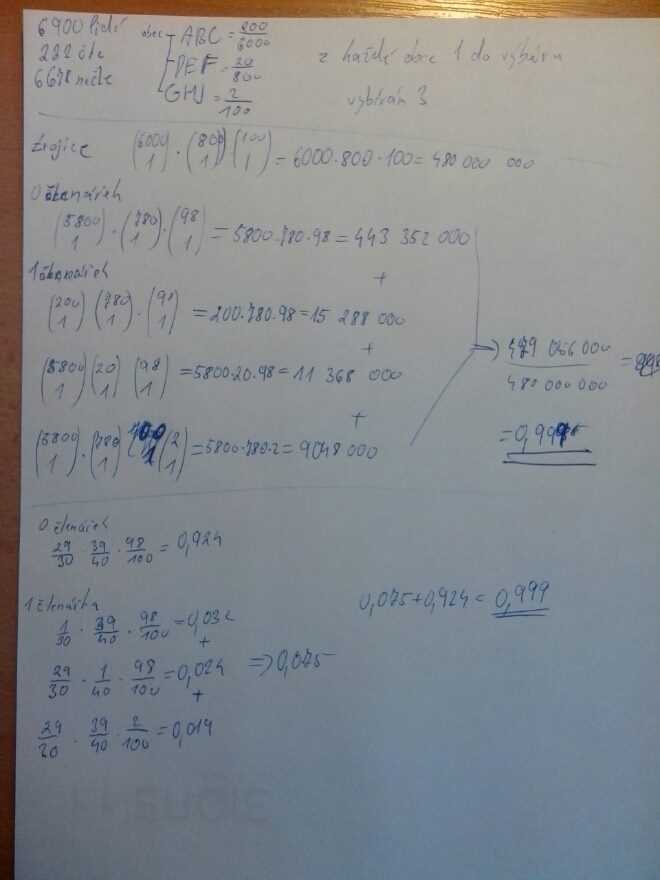 6900 lidí
222 čte
6678 nečte
obec ABC = 200/6000
DEF = 20/800
GHJ = 2/100
z každé obce 1 do výběru
vybírám 3
trojice (6000 1) · (800 1) (100 1) = 6000·800·100 = 480 000 000
0 čtenářek
(5800 1) · (780 1) · (98 1) = 5800·780·98 = 443 352 000
+
1 čtenářek
(200 1) (780 1) · (98 1) = 200·780·98 = 15 288 000
+
(5800 1) (20 1) (98 1) = 5800·20·98 = 11 368 000
+
(5800 1) · (780 1) (2 1) = 5800·780·2 = 9048 000
=> 479 056 000 / 480 000 000 =
= 0,99
0 čtenářek
29/30 · 39/40 · 98/100 = 0,924
1 čtenářka
1/30 · 39/40 · 98/100 = 0,032
+
29/30 · 1/40 · 98/100 = 0,024 => 0,075
+
29/30 · 39/40 · 2/100 = 0,019
0,075 + 0,924 = 0,999